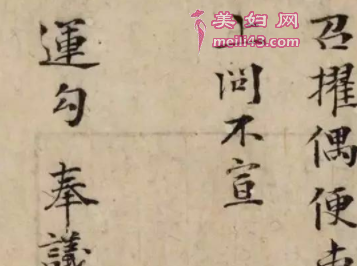 召擢偶便
問不宣
運勾 奉議
美妇网
meili43.com